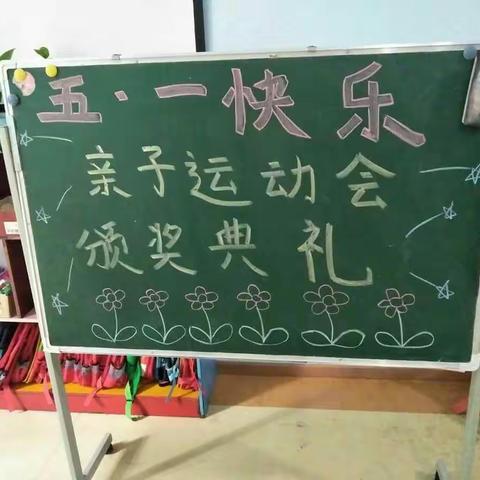 五·一快乐
亲子运动会
颁奖典礼